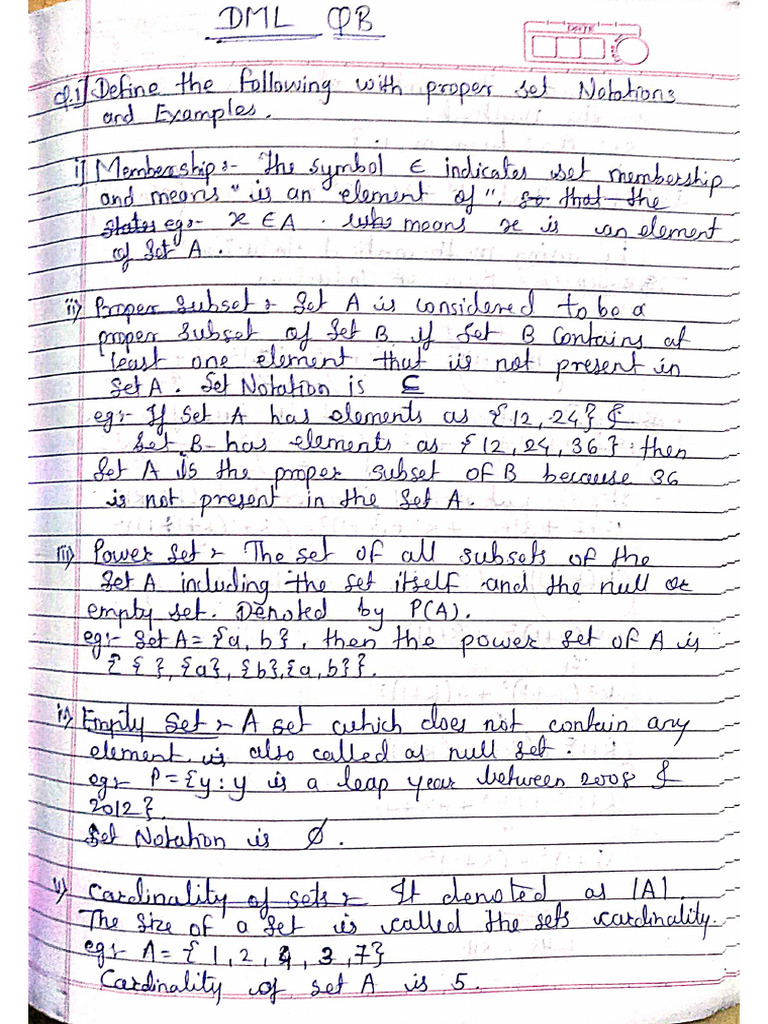 DML QB
DATE
Q.1] Define the following with proper set Notations
and Examples.
i] Membership:- The symbol ∈ indicates set membership
and means "is an element of". so that the
states eg:- x ∈ A . means x is an element
of Set A .
ii) Proper Subset :- Set A is considered to be a
proper subset of Set B if Set B contains at
least one element that is not present in
Set A . Set Notation is ⊆
eg:- If Set A has elements as {12, 24} &
Set B has elements as {12, 24, 36} then
Set A is the proper subset of B because 36
is not present in the Set A .
iii) Power Set :- The set of all subsets of the
Set A including the set itself and the null or
empty set. Denoted by P(A).
eg:- Set A = {a, b} , then the power set of A is
{ { }, {a}, {b}, {a, b}}.
iv) Empty Set :- A set which does not contain any
element is also called as null set .
eg:- P = {y : y is a leap year between 2008 &
2012}.
Set Notation is Ø .
v) Cardinality of sets :- It denoted as |A| .
The size of a set is called the sets cardinality.
eg:- A = { 1, 2, 4, 3, 7}
Cardinality of set A is 5 .